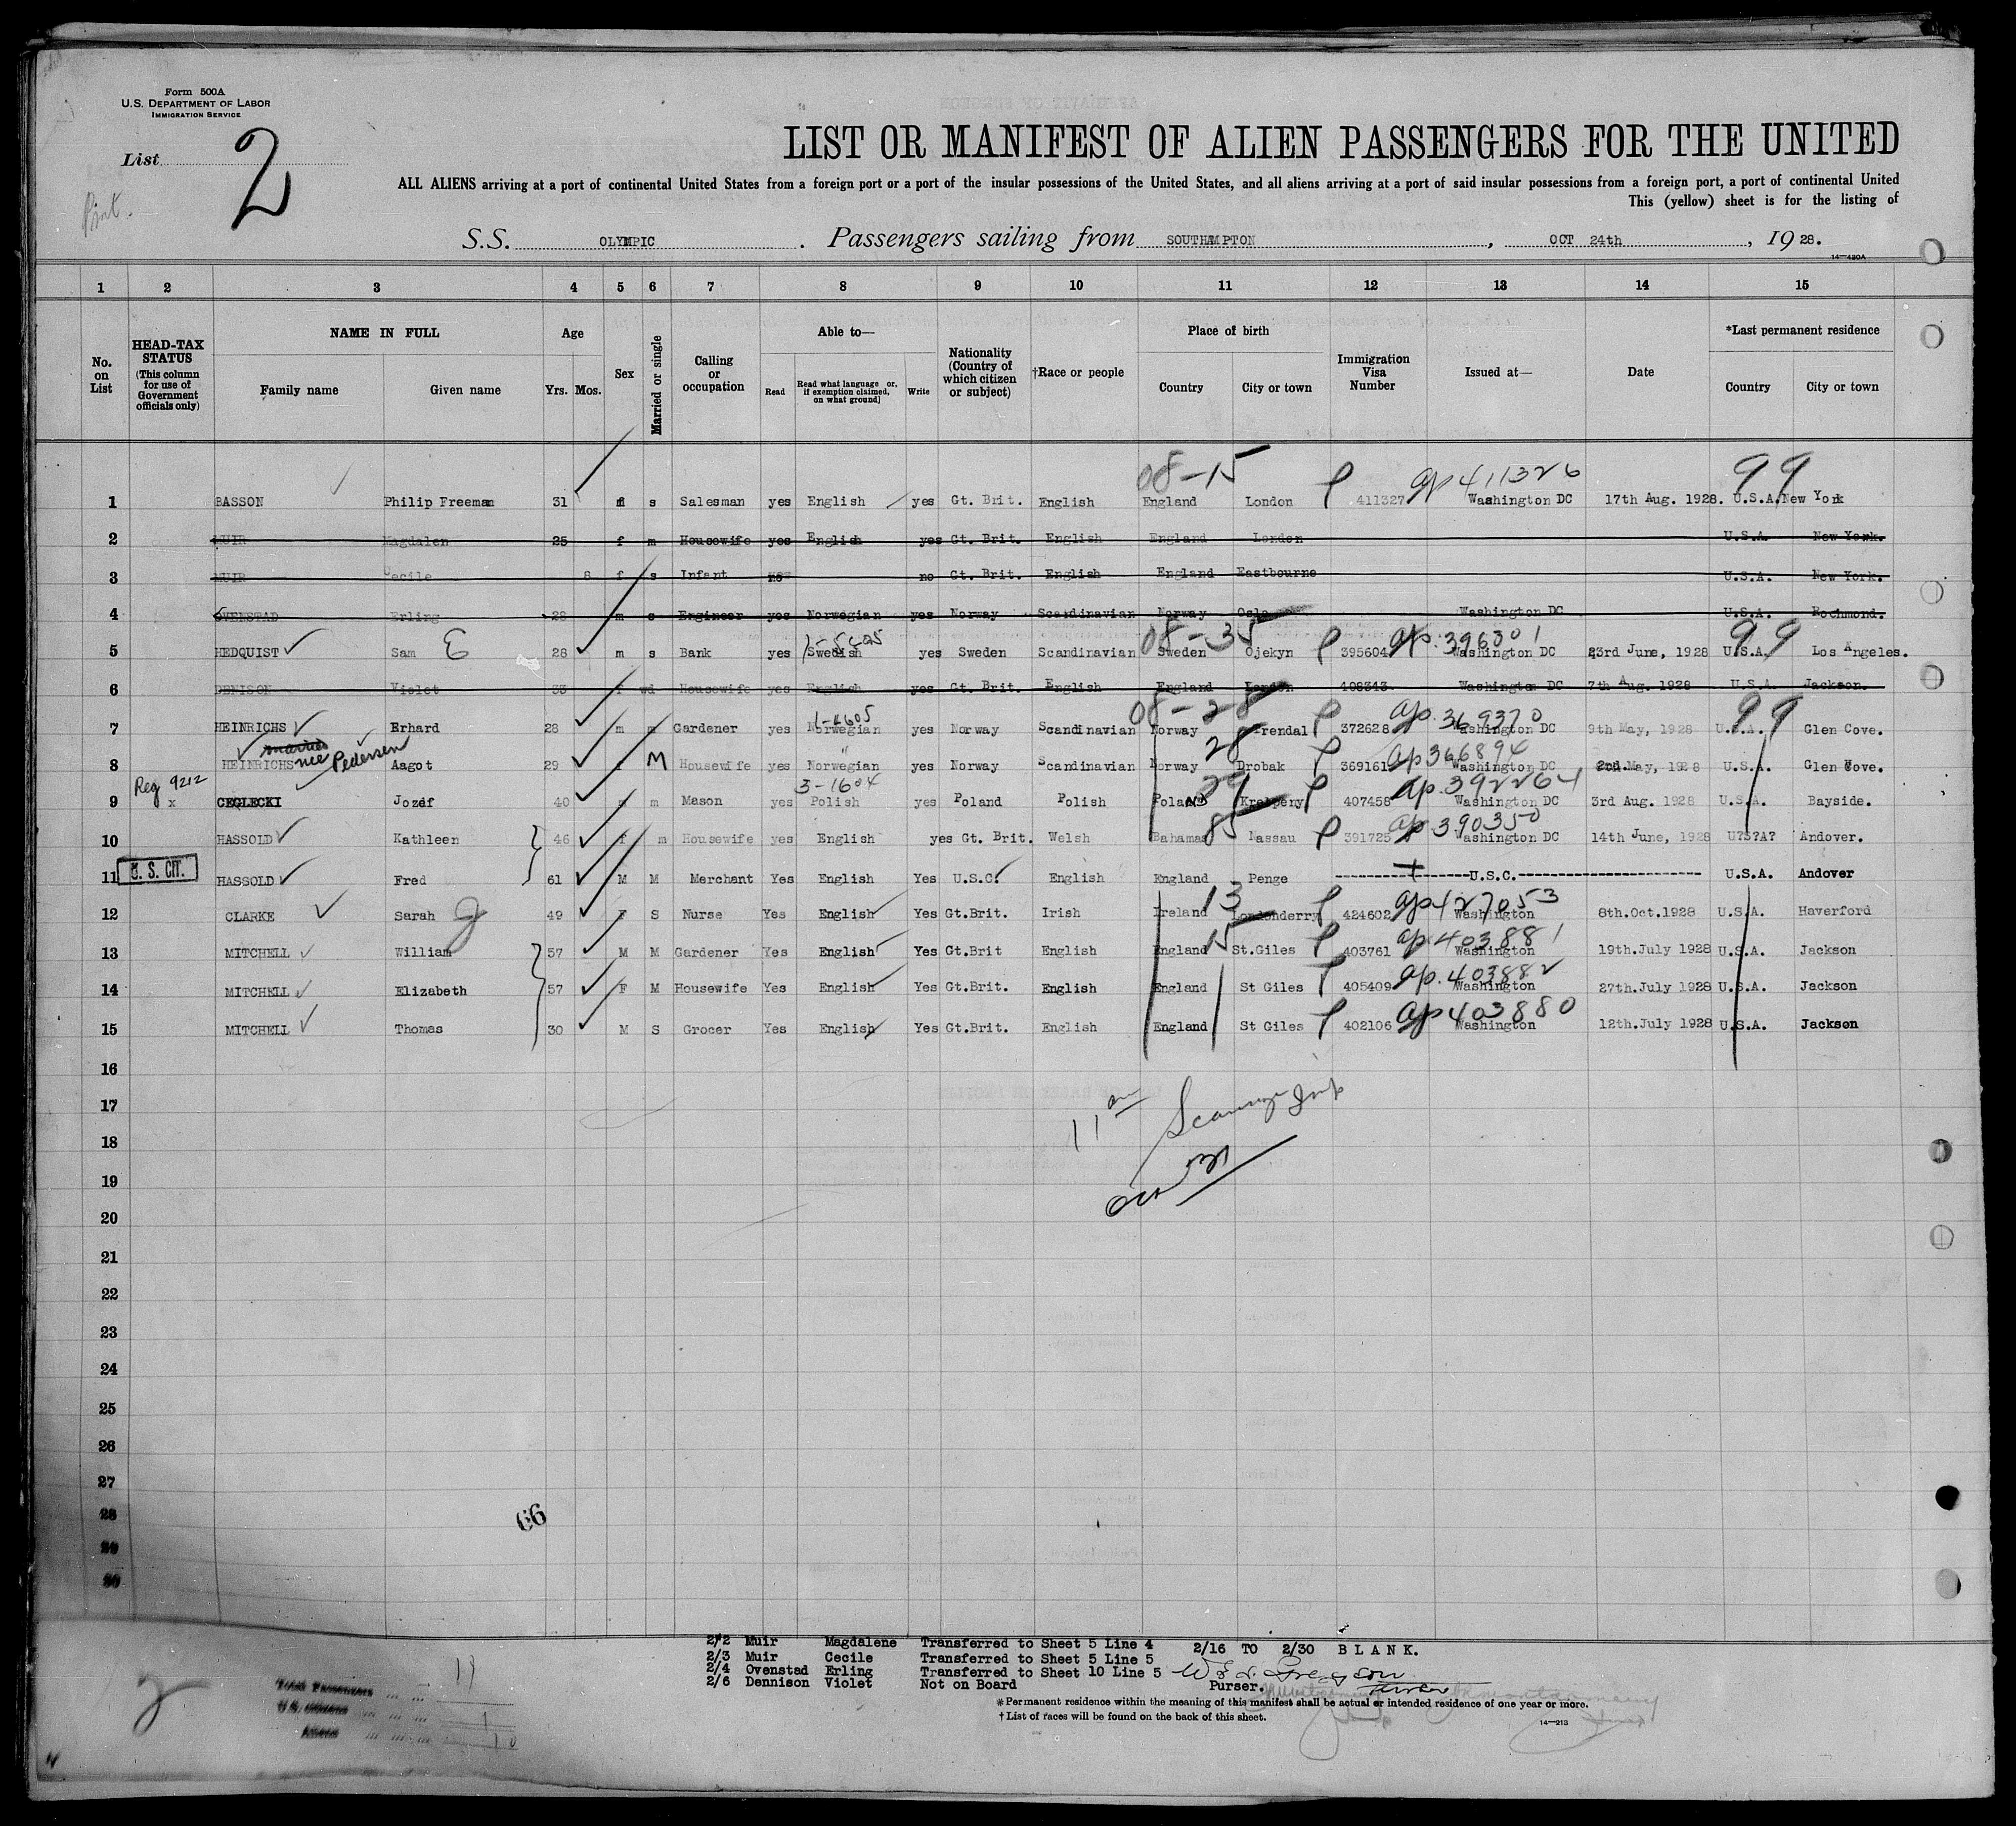 Form 500A
U.S. DEPARTMENT OF LABOR
IMMIGRATION SERVICE
List 2
Print.
LIST OR MANIFEST OF ALIEN PASSENGERS FOR THE UNITED
ALL ALIENS arriving at a port of continental United States from a foreign port or a port of the insular possessions of the United States, and all aliens arriving at a port of said insular possessions from a foreign port, a port of continental United
This (yellow) sheet is for the listing of
S.S. OLYMPIC . Passengers sailing from SOUTHAMPTON , OCT 24th , 19 28.
14—430A
1 2 3 4 5 6 7 8 9 10 11 12 13 14 15
No. on List
HEAD-TAX STATUS (This column for use of Government officials only)
NAME IN FULL Family name Given name
Age Yrs. Mos.
Sex
Married or single
Calling or occupation
Able to— Read Read what language or, if exemption claimed, on what ground] Write
Nationality (Country of which citizen or subject)
†Race or people
Place of birth Country City or town
Immigration Visa Number
Issued at—
Date
*Last permanent residence Country City or town
08-15 ap 411326 99
1 BASSON Philip Freeman 31 m s Salesman yes English yes Gt. Brit. English England London 411327 Washington DC 17th Aug. 1928. U.S.A. New York
2 MUIR Magdalen 25 f m Housewife yes English yes Gt. Brit. English England London U.S.A. New York.
3 MUIR Cecile 8 f s Infant no no Gt. Brit. English England Eastbourne U.S.A. New York.
4 OVENSTAD Erling 28 m s Engineer yes Norwegian yes Norway Scandinavian Norway Oslo Washington DC U.S.A. Rochmond.
08-35 ap. 396301 99
5 HEDQUIST Sam E 28 m s Bank yes Swedish yes Sweden Scandinavian Sweden Ojekyn 395604 Washington DC 23rd June, 1928 U.S.A. Los Angeles.
6 DENISON Violet 33 f wd Housewife yes English yes Gt. Brit. English England London 408343 Washington DC 7th Aug. 1928 U.S.A. Jackson.
08-28 ap. 369370 99
7 HEINRICHS Erhard 28 m m Gardener yes Norwegian yes Norway Scandinavian Norway Arendal 372628 Washington DC 9th May, 1928 U.S.A. Glen Cove.
married nee Pedersen 28 ap 366894
8 HEINRICHS Aagot 29 f M Housewife yes Norwegian yes Norway Scandinavian Norway Drobak 369161 Washington DC 2nd. May, 1928 U.S.A. Glen Cove.
Reg 9212 3-1604 29 ap. 392264
9 x CEGLECKI Jozef 40 m m Mason yes Polish yes Poland Polish Poland 407458 Washington DC 3rd Aug. 1928 U.S.A. Bayside.
85 ap 390350
10 HASSOLD Kathleen 46 f m Housewife yes English yes Gt. Brit. Welsh Bahamas Nassau 391725 Washington DC 14th June, 1928 U?S?A? Andover.
11 U. S. CIT. HASSOLD Fred 61 M M Merchant Yes English Yes U.S.C. English England Penge -------U.S.C.------- U.S.A. Andover
13 ap 427053
12 CLARKE Sarah J 49 F S Nurse Yes English Yes Gt.Brit. Irish Ireland Londonderry 424602 Washington 8th.Oct.1928 U.S.A. Haverford
15 ap. 403881
13 MITCHELL William 57 M M Gardener Yes English Yes Gt.Brit English England St.Giles 403761 Washington 19th.July 1928 U.S.A. Jackson
ap. 403882
14 MITCHELL Elizabeth 57 F M Housewife Yes English Yes Gt.Brit. English England St Giles 405409 Washington 27th.July 1928 U.S.A. Jackson
ap 403880
15 MITCHELL Thomas 30 M S Grocer Yes English Yes Gt.Brit. English England St Giles 402106 Washington 12th.July 1928 U.S.A. Jackson
16
17
18
19
20
21
22
23
24
25
26
27
28
29
30
11 am
66
2/2 Muir Magdalene Transferred to Sheet 5 Line 4 2/16 TO 2/30 B L A N K.
2/3 Muir Cecile Transferred to Sheet 5 Line 5
2/4 Ovenstad Erling Transferred to Sheet 10 Line 5
2/6 Dennison Violet Not on Board Purser.
Total Passengers ... ... 11
U.S. Citizens ... ... 1
Aliens ... ... 10
2
*Permanent residence within the meaning of this manifest shall be actual or intended residence of one year or more.
†List of races will be found on the back of this sheet.
14—213